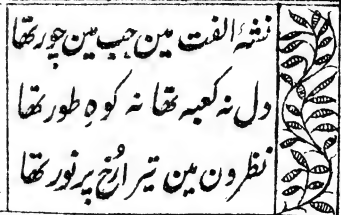 نشۂ الفت مین جب مین چور تھا
دل نہ کعبہ تھا نہ کوہِ طور تھا
نظرون مین تیرا رُخ پرنور تھا